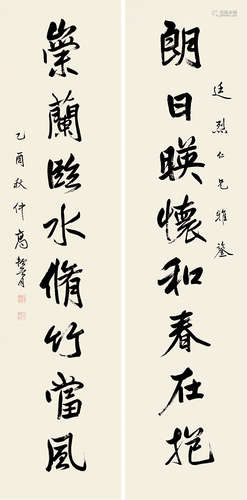 廷烈仁兄雅鑒
朗日暎懷和春在抱
崇蘭臨水脩竹當風
乙酉秋仲高振霄